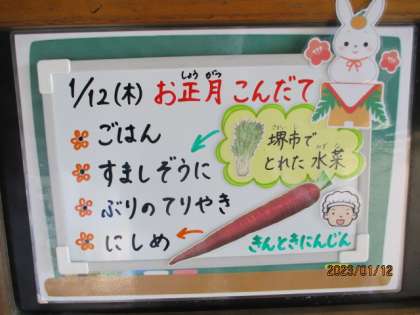 1/12(木) お正月こんだて
しょう がつ
ごはん
すましぞうに
ぶりのてりやき
にしめ
さかいし
堺市で
みずな
とれた水菜
きんときにんじん
2023/01/12